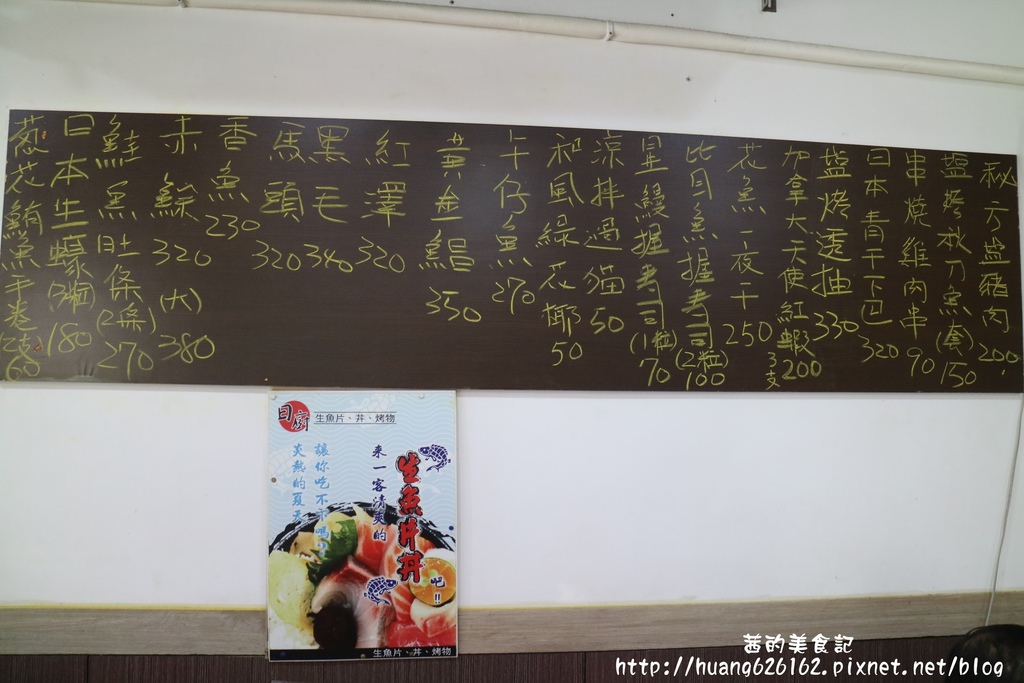 秘方鹹豬肉 200
鹽烤秋刀魚(套) 150
串燒雞肉串 90
日本青干下巴 320
鹽烤透抽 330
加拿大天使紅蝦 3支 200
花魚一夜干 250
比目魚握壽司 (2粒) 100
星鰻握壽司 (1粒) 70
涼拌過貓 50
和風綠花椰 50
午仔魚 270
黃金鯧 350
紅澤 320
黑毛 340
馬頭 320
香魚 230
赤鯮 320 (大) 380
鮭魚肚條 (2條) 270
日本生蠔 (3粒) 180
蔥花鮪魚手卷 (2支) 60
日廚
生魚片、丼、烤物
來一客清爽的
生魚片丼
吧!!
讓你吃不下嗎?
炎熱的夏天
生魚片、丼、烤物
茜的美食記
http://huang626162.pixnet.net/blog